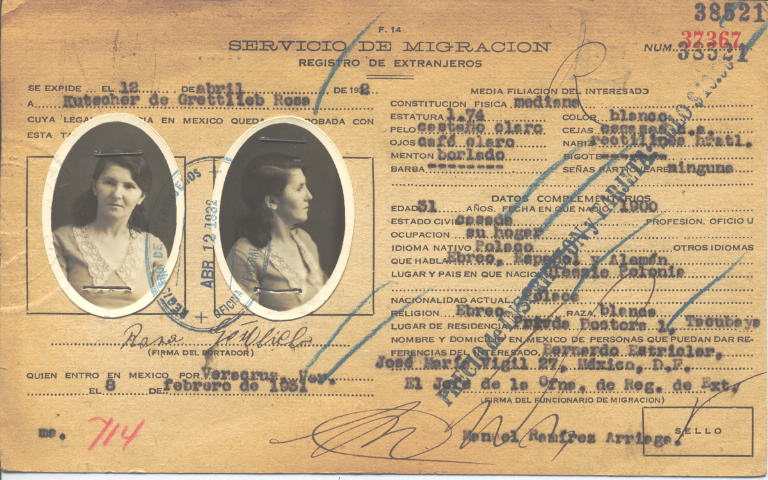 38521
F. 14
SERVICIO DE MIGRACION
NUM. 37367
38521
REGISTRO DE EXTRANJEROS
SE EXPIDE EL 12 DE abril DE 1932
A Kutscher de Grettlieb Rosa
CUYA LEGAL EN MEXICO QUEDA COMPROBADA CON
ESTA
ABR 12 1932
Rosa
(FIRMA DEL PORTADOR)
QUIEN ENTRO EN MEXICO POR Veracruz, Ver.
EL 8 DE febrero de 1931
me. 714
MEDIA FILIACION DEL INTERESADO
CONSTITUCION FISICA mediana
ESTATURA 1.74 COLOR blanco
PELO castaño claro CEJAS escasas c.a.
OJOS café claro NARIZ rectilinea bratl.
MENTON borlado BIGOTE --------
BARBA -------- SEÑAS PARTICULARES ninguna
DATOS COMPLEMENTARIOS
EDAD 31 AÑOS. FECHA EN QUE NACIO 1900
ESTADO CIVIL casada PROFESION, OFICIO U
OCUPACION su hogar
IDIOMA NATIVO Polaco OTROS IDIOMAS
QUE HABLA Ebreo, Español y Alemán
LUGAR Y PAIS EN QUE NACIO Polonia
NACIONALIDAD ACTUAL Polaca
RELIGION Ebreo RAZA blanca
LUGAR DE RESIDENCIA Pastora 1, Tacubaya
NOMBRE Y DOMICILIO EN MEXICO DE PERSONAS QUE PUEDAN DAR RE-
FERENCIAS DEL INTERESADO Bernardo Estricler,
José María Vigil 27, México, D.F.
El Jefe de la Ofna. de Reg. de Ext.
(FIRMA DEL FUNCIONARIO DE MIGRACION)
Manuel Ramírez Arriaga.
SELLO